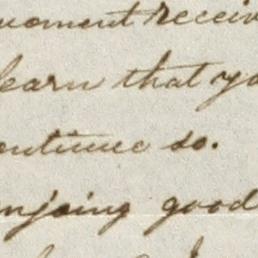 moment receiv
learn that yo
ontinue so.
njoing good